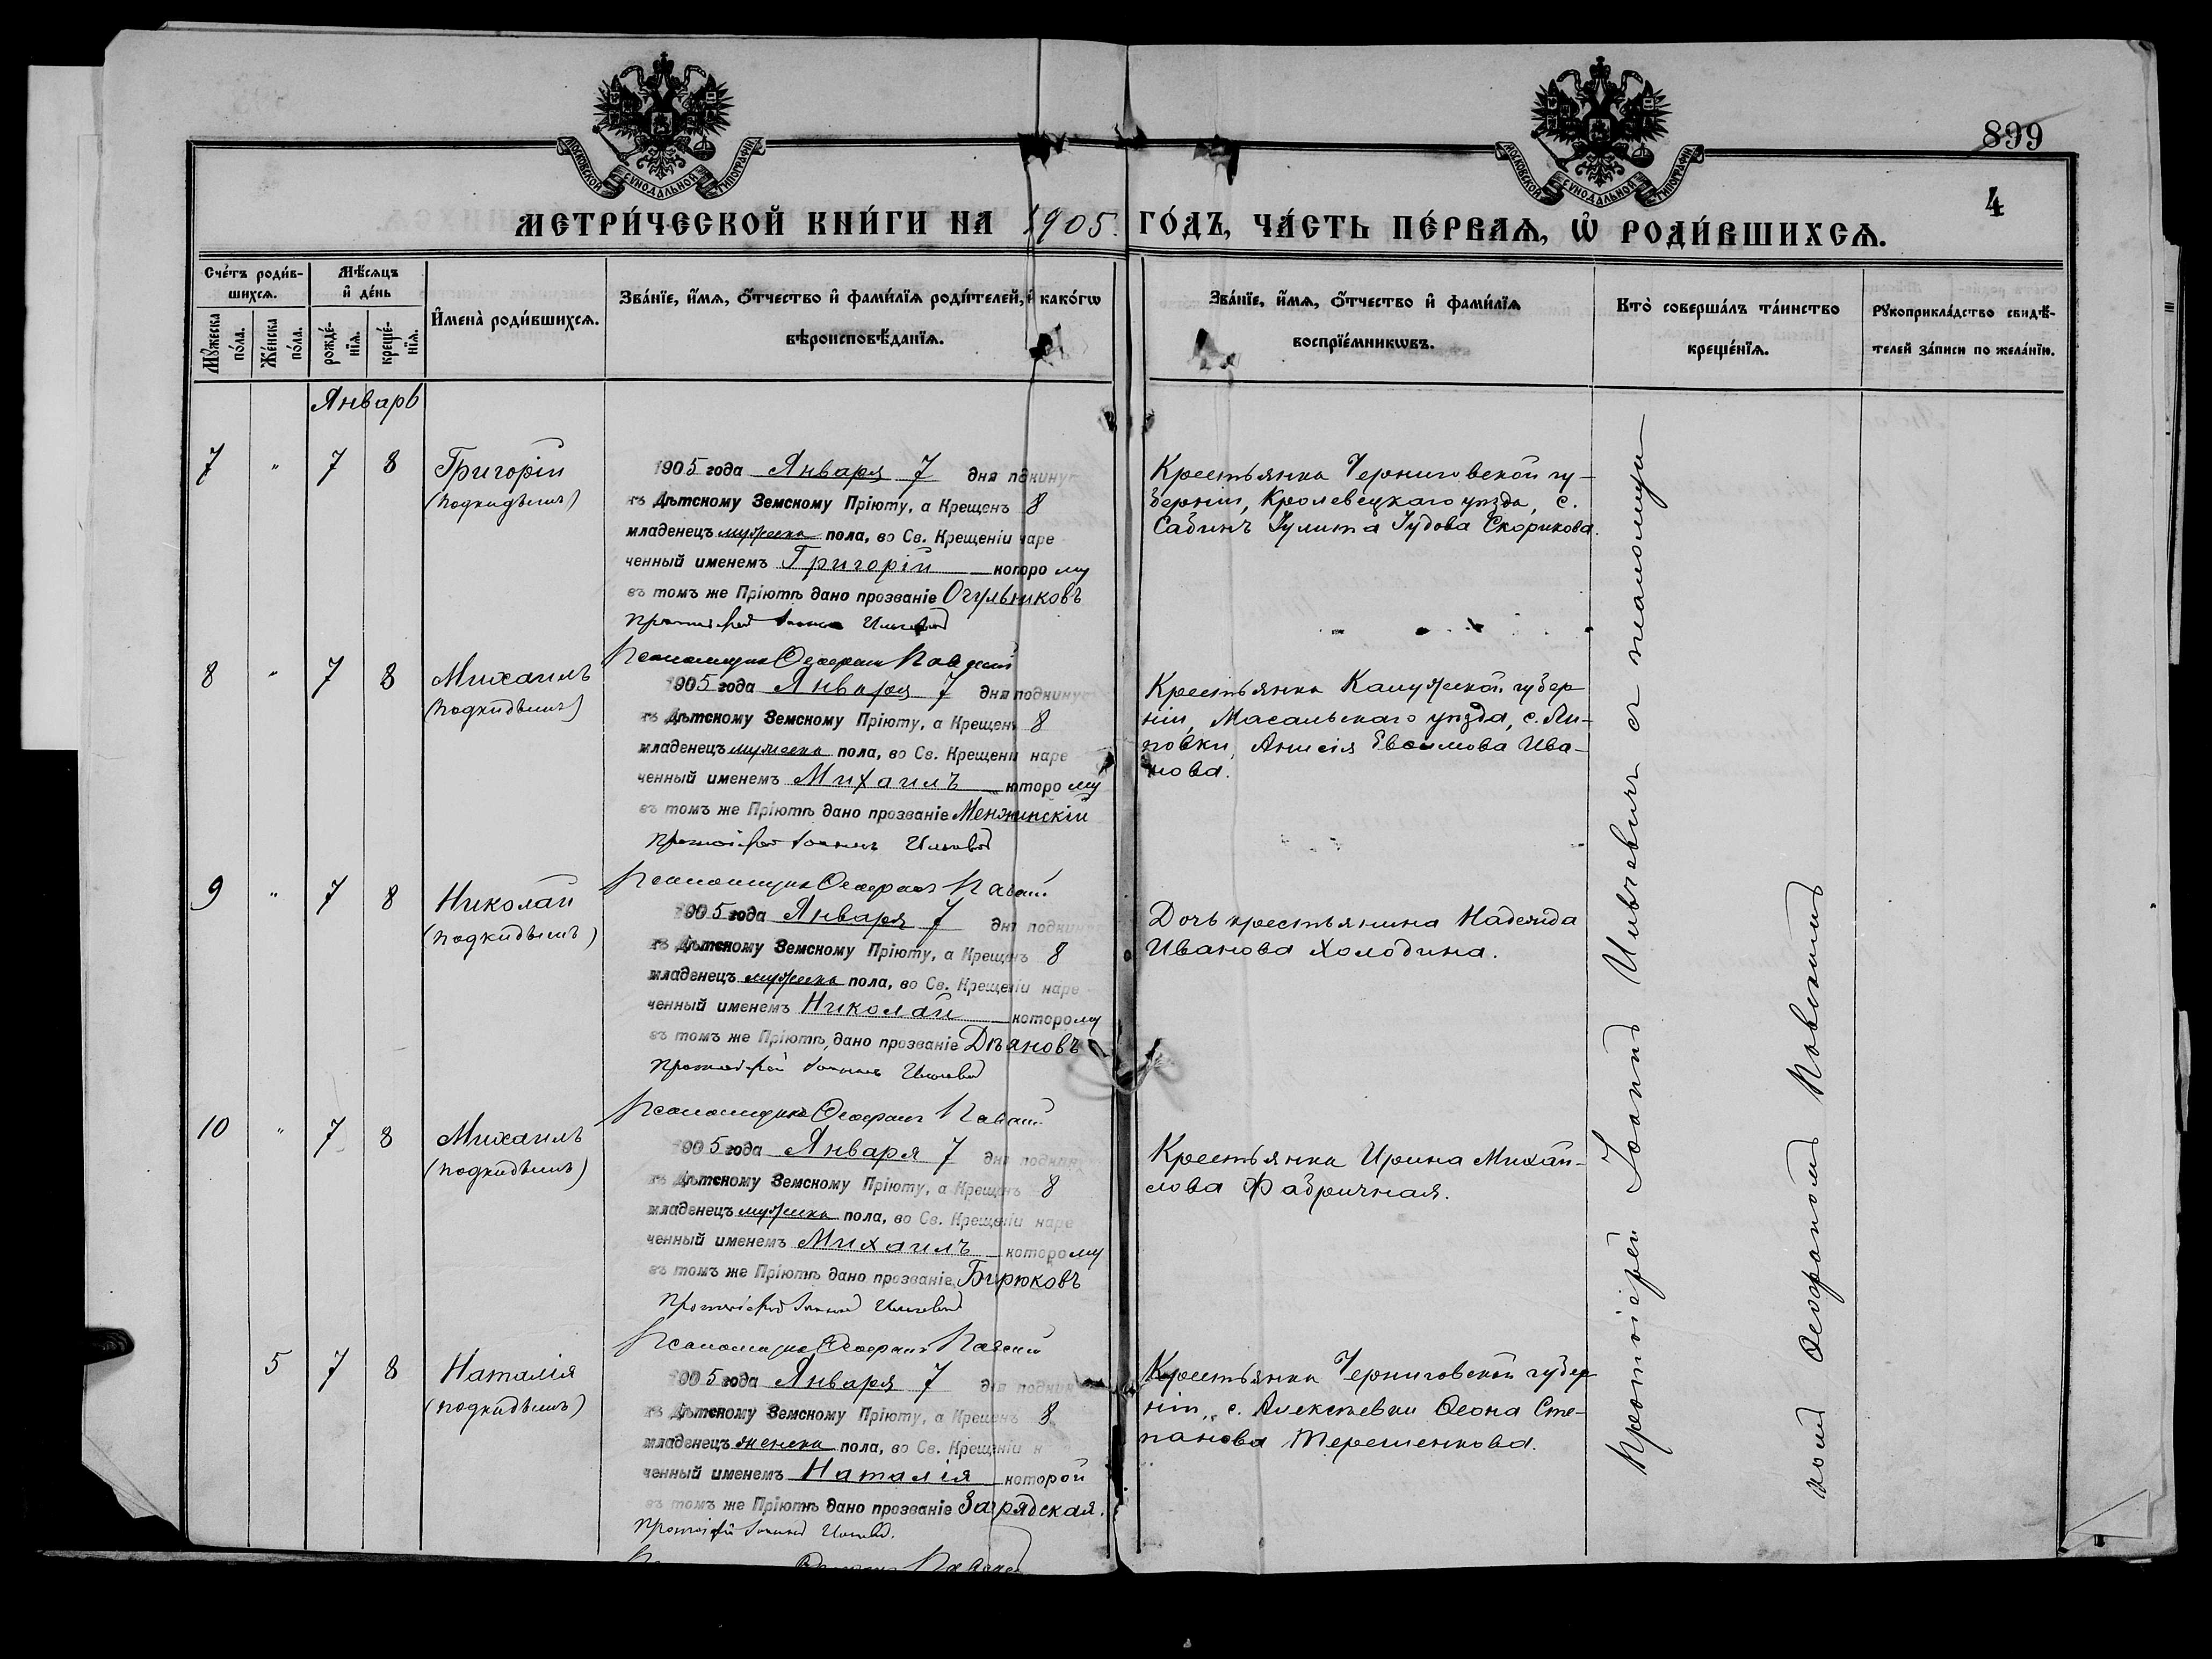 МОСКОВСКОЙ СѴНОДАЛЬНОЙ ТИПОГРАФІИ
МОСКОВСКОЙ СѴНОДАЛЬНОЙ ТИПОГРАФІИ
899
4
МЕТРИ́ЧЕСКОЙ КНИ́ГИ НА 1905. ГО́ДЪ, ЧА́СТЬ ПЕ́РВАѦ, Ѡ҆ РОДИ́ВШИХСѦ.
Сче́тъ роди́в-
шихсѧ.
Мꙋ́жеска по́ла.
Же́нска по́ла.
Мѣ́сѧцъ
и҆ де́нь
рожде́-нїѧ.
креще́-нїѧ.
И҆мена̀ роди́вшихсѧ.
Зва́нїе, и҆́мѧ, ѻ҆́тчество и҆ фами́лїѧ роди́телей, и҆ како́гѡ
вѣроисповѣ́данїѧ.
Зва́нїе, и҆́мѧ, ѻ҆́тчество и҆ фами́лїѧ
воспрїе́мникѡвъ.
Кто̀ соверша́лъ та́инство
креще́нїѧ.
Рꙋкоприкла́дство свидѣ́-
телей за́писи по жела́нїю.
Январь
7 " 7 8 Григорій
(подкидышъ)
1905 года Января 7 дня подкинут
къ Дѣтскому Земскому Пріюту, а Крещенъ 8
младенецъ мужеска пола, во Св. Крещеніи наре
ченный именемъ Григорій которому
въ томъ же Пріютѣ дано прозваніе Огульниковъ
Протоіерей Іоаннъ
Псаломщикъ Ѳеофанъ
Крестьянка Черниговской гу-
берніи, Кролевецкаго уѣзда, с.
Сабинъ Іулита Іудова Скорикова.
8 " 7 8 Михаилъ
(подкидышъ)
1905 года Января 7 дня подкинут
къ Дѣтскому Земскому Пріюту, а Крещенъ 8
младенецъ мужеска пола, во Св. Крещеніи наре
ченный именемъ Михаилъ которому
въ томъ же Пріютѣ дано прозваніе Менжинскій
Протоіерей Іоаннъ
Псаломщикъ Ѳеофанъ
Крестьянка Калужской губер
ніи, Масальскаго уѣзда, с. Ли-
повки, Анисія Евѳимова Ива-
нова.
9 " 7 8 Николай
(подкидышъ)
1905 года Января 7 дня подкинут
къ Дѣтскому Земскому Пріюту, а Крещенъ 8
младенецъ мужеска пола, во Св. Крещеніи наре
ченный именемъ Николай которому
въ томъ же Пріютѣ дано прозваніе Дѣяновъ
Протоіерей Іоаннъ
Псаломщикъ Ѳеофанъ
Дочь крестьянина Надежда
Иванова Холодина.
10 " 7 8 Михаилъ
(подкидышъ)
1905 года Января 7 дня подкинут
къ Дѣтскому Земскому Пріюту, а Крещенъ 8
младенецъ мужеска пола, во Св. Крещеніи наре
ченный именемъ Михаилъ которому
въ томъ же Пріютѣ дано прозваніе Бирюковъ
Протоіерей Іоаннъ
Псаломщикъ Ѳеофанъ
Крестьянка Ирина Михай-
лова Фабричная.
5 7 8 Наталія
(подкидышъ)
1905 года Января 7 дня подкин
къ Дѣтскому Земскому Пріюту, а Крещенъ 8
младенецъ женска пола, во Св. Крещеніи н
ченный именемъ Наталія которой
въ томъ же Пріютѣ дано прозваніе Загрядская.
Протоіерей Іоаннъ
Крестьянка Черниговской губер
ніи, с. Алексѣевки Ѳеона Сте-
панова Терешенкова.
Протоіерей Іоаннъ съ псаломщи-
комъ Ѳеофаномъ